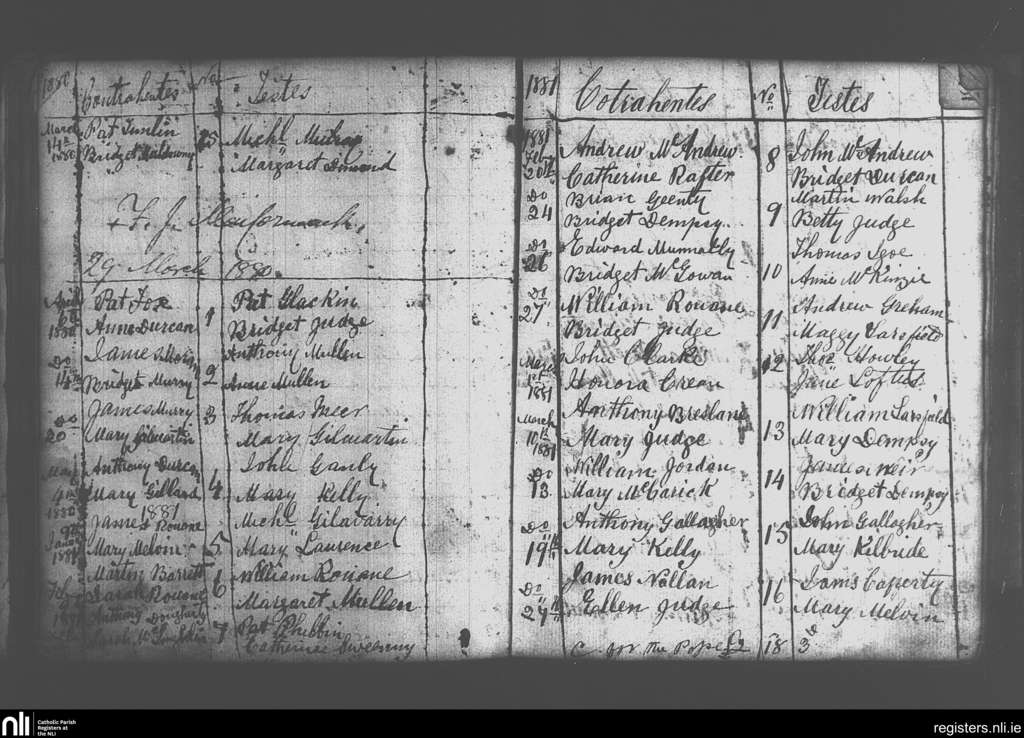 1880 Contrahentes No Testes
March Pat Timlin 25 Michl Mulray
14th 1880 Bridget Margaret
+ F. J. MacCormack,
29 March 1880.
April Pat Fox 1 Pat Glackin
1880 Anne Durcan Bridget Judge
Do James Anthony Mullen
14th Bridget Murry 2 Anne Mullen
Do James Murry 3 Thomas Meer
20 Mary Gilmartin Mary Gilmartin
May Anthony Durcan 4 John Ganly
4th 1880 Mary Gillard Mary Kelly
1881
James Rouane 5 Michl Gilavarry
1881 Mary Melvin Mary Laurence
Martin Barrett 6 William Rouane
Sarah Rouane Margaret Mullen
Anthony 7 Pat Philbin
Sarah Catherine Sweeny
1881 Cotrahentes No Testes
1881 Feb Andrew McAndrew 8 John McAndrew
20th Catherine Rafter Bridget Durcan
Do Brian Geenty 9 Martin Walsh
24 Bridget Dempsy. Betty Judge
Do Edward Munnally 10 Thomas Igoe
26 Bridget McGowan Anne McKenzie
Do William Rouane 11 Andrew Greham
27 Bridget Judge Maggy Sarsfield
March John Clarke 12 Thos Howley
1st 1881 Honora Crean Jane Loftus
March Anthony Breslane 13 William Sarsfield
10th 1881 Mary Judge Mary Dempsy
Do William Jordan 14 James Weir
13. Mary McCarick Bridget Dempsy
Do Anthony Gallagher 15 John Gallagher
19th Mary Kelly Mary Kilbride
Do James Nollan 16 James Caferty
24th Ellen Judge Mary Melvin
C for the Pope £2 18 3d
nli Catholic Parish
Registers at
the NLI
registers.nli.ie